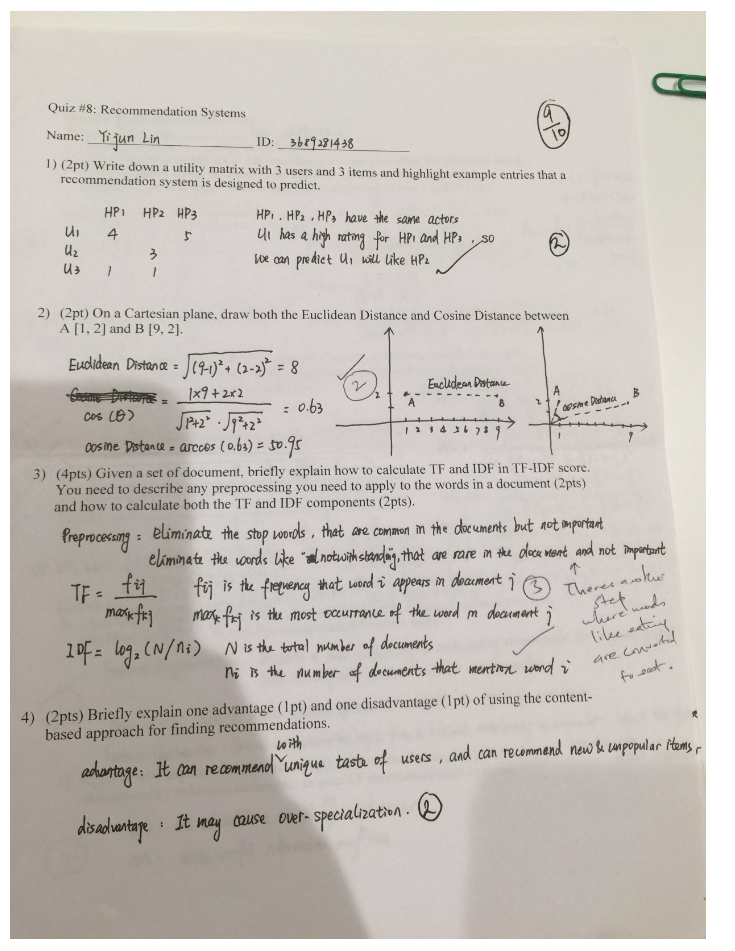 Quiz #8: Recommendation Systems
9/10
Name: Yijun Lin ID: 3689281438
1) (2pt) Write down a utility matrix with 3 users and 3 items and highlight example entries that a
recommendation system is designed to predict.
HP1 HP2 HP3
U1 4 5
U2 3
U3 1 1
HP1, HP2, HP3 have the same actors
U1 has a high rating for HP1 and HP3, so
we can predict U1 will like HP2
2
2) (2pt) On a Cartesian plane, draw both the Euclidean Distance and Cosine Distance between
A [1, 2] and B [9, 2].
Euclidean Distance = √(9-1)² + (2-2)² = 8
cos(θ) = 1×9+2×2 / √1²+2² · √9²+2² = 0.63
cosine Distance = arccos (0.63) = 50.95
2
2 A Euclidean Distance B
1 2 3 4 5 6 7 8 9
2 A Cosine Distance B
1 9
3) (4pts) Given a set of document, briefly explain how to calculate TF and IDF in TF-IDF score.
You need to describe any preprocessing you need to apply to the words in a document (2pts)
and how to calculate both the TF and IDF components (2pts).
Preprocessing: eliminate the stop words, that are common in the documents but not important
eliminate the words like "notwithstanding", that are rare in the document and not important
TF = fij / maxk fkj
fij is the frequency that word i appears in document j
maxk fkj is the most occurrance of the word in document j
IDF = log₂ (N/ni)
N is the total number of documents
ni is the number of documents that mention word i
3
There's another
step
where words
like eating
are converted
to eat.
4) (2pts) Briefly explain one advantage (1pt) and one disadvantage (1pt) of using the content-
based approach for finding recommendations.
advantage: It can recommend with unique taste of users, and can recommend new & unpopular items.
disadvantage: It may cause over-specialization. 2